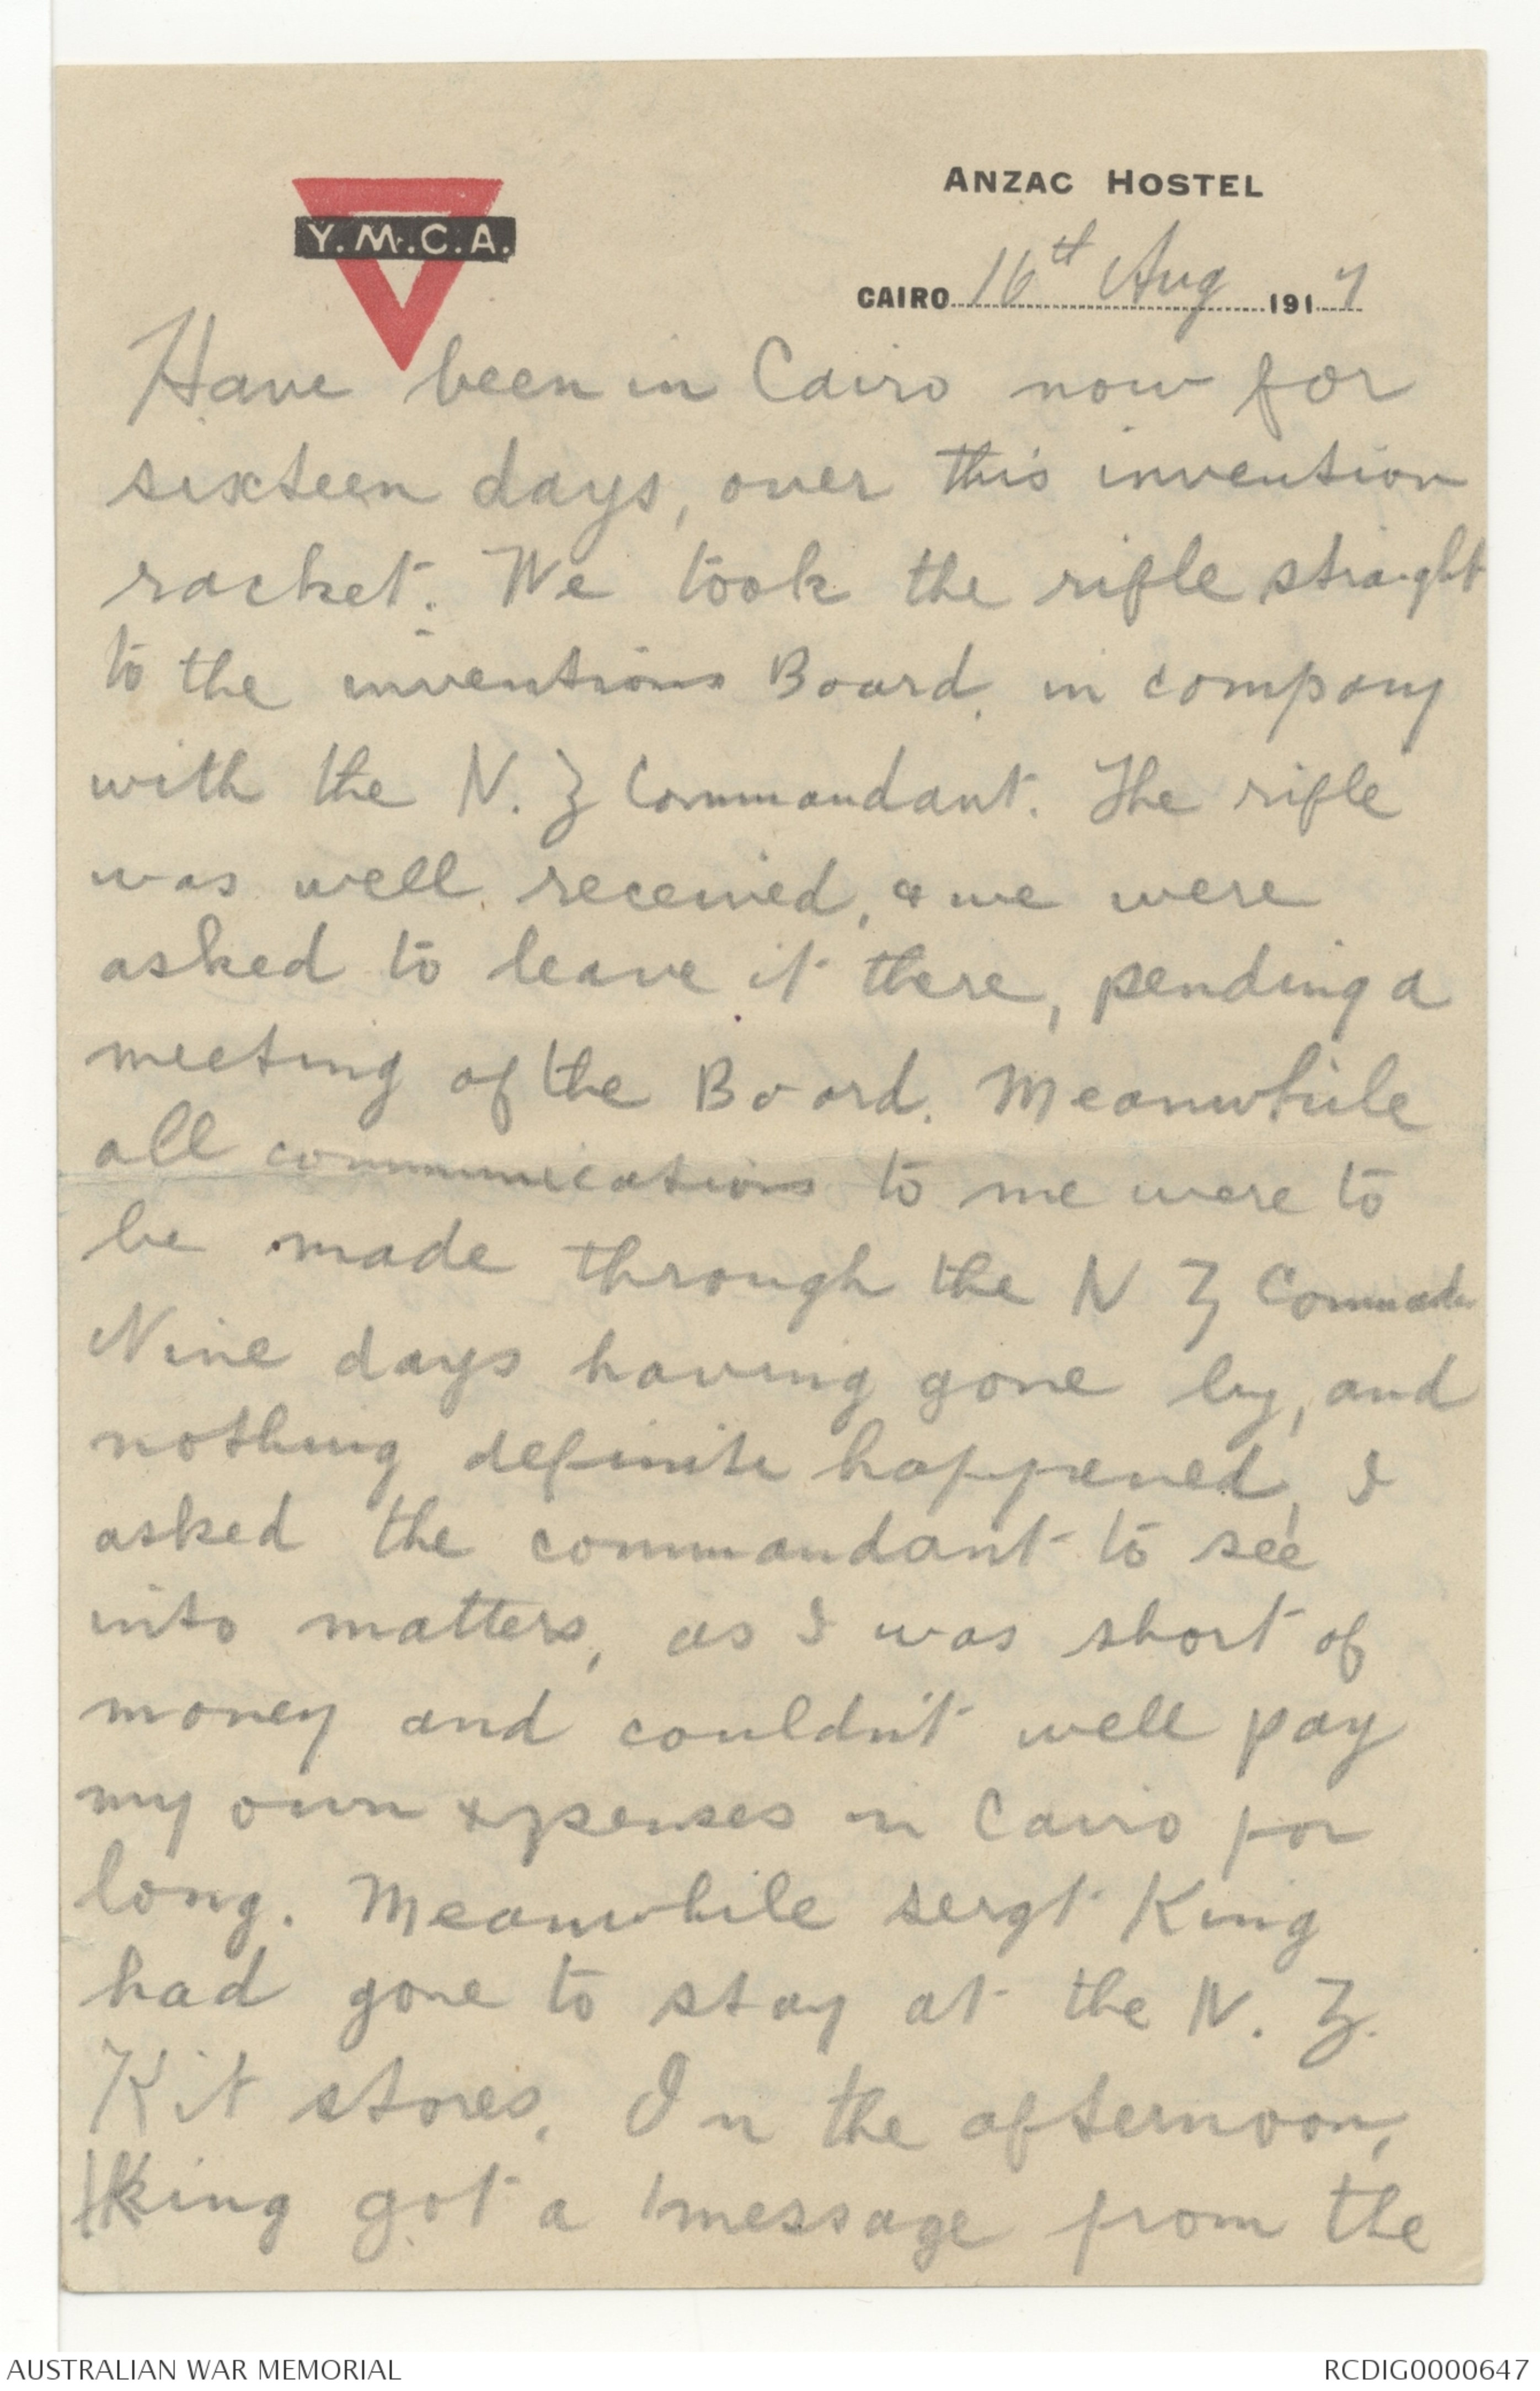 ANZAC HOSTEL
Y.M.C.A.
CAIRO 16th Aug 1917
Have been in Cairo now for
sixteen days, over this invention
racket. We took the rifle straight
to the inventions Board, in company
with the N. Z Commandant. The rifle
was well received, & we were
asked to leave it there, pending a
meeting of the Board. Meanwhile
all communications to me were to
be made through the N Z
Nine days having gone by, and
nothing definite happened, I
asked the commandant to see
into matters, as I was short of
money and couldn't well pay
my own expenses in Cairo for
long. Meanwhile sergt King
had gone to stay at the N. Z.
Kit stores. In the afternoon,
King got a message from the
AUSTRALIAN WAR MEMORIAL
RCDIG0000647